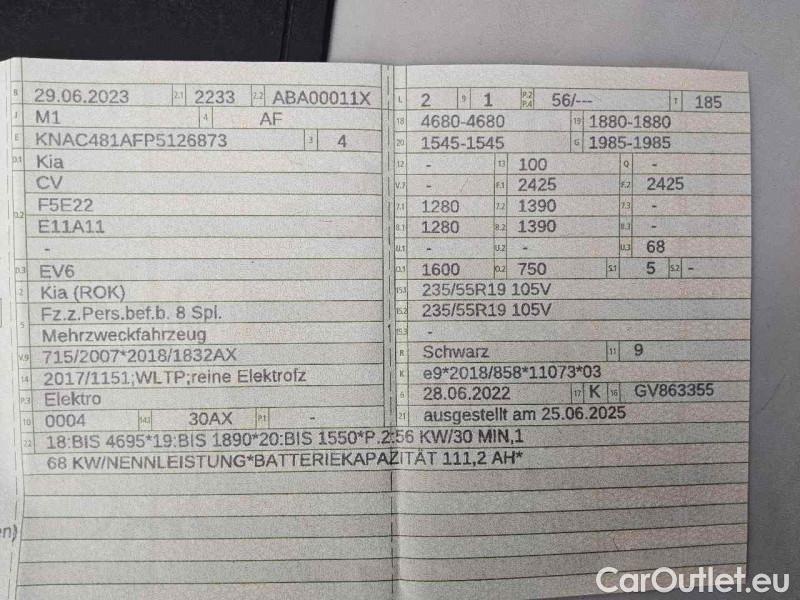 B 29.06.2023 2.1 2233 2.2 ABA00011X
J M1 4 AF
E KNAC481AFP5126873 3 4
D.1 Kia
CV
D.2 F5E22
E11A11
-
D.3 EV6
2 Kia (ROK)
5 Fz.z.Pers.bef.b. 8 Spl.
Mehrzweckfahrzeug
V.9 715/2007*2018/1832AX
14 2017/1151;WLTP;reine Elektrofz
P.3 Elektro
10 0004 14.1 30AX P.1 -
L 2 9 1 P.2 P.4 56/--- T 185
18 4680-4680 19 1880-1880
20 1545-1545 G 1985-1985
12 - 13 100 Q -
V.7 - F.1 2425 F.2 2425
7.1 1280 7.2 1390 7.3 -
8.1 1280 8.2 1390 8.3 -
U.1 - U.2 - U.3 68
O.1 1600 O.2 750 S.1 5 S.2 -
15.1 235/55R19 105V
15.2 235/55R19 105V
15.3 -
R Schwarz 11 9
K e9*2018/858*11073*03
6 28.06.2022 17 K 16 GV863355
21 ausgestellt am 25.06.2025
22 18:BIS 4695*19:BIS 1890*20:BIS 1550*P.2:56 KW/30 MIN,1
68 KW/NENNLEISTUNG*BATTERIEKAPAZITÄT 111,2 AH*
en)
CarOutlet.eu